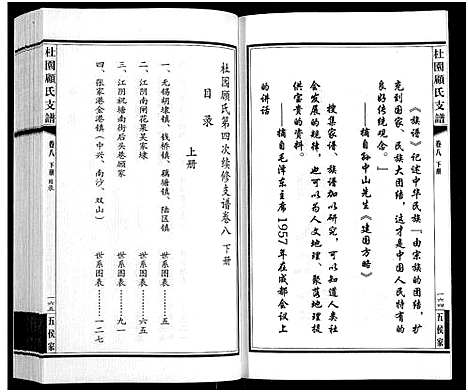 《族谱》记述中华民族“由宗族的团结，扩
充到国家、民族大团结，这才是中国人民特有的
良好传统观念。”
——摘自孙中山先生《建国方略》
搜集家谱、族谱加以研究，可以知道人类社
会发展的规律，也可以为人文地理、聚落地理提
供宝贵的资料。
——摘自毛泽东主席1957年在成都会议上
的讲话
杜园顾氏支譜
卷八 下册
一六四
五侯家
杜园顾氏第四次续修支谱卷八 下册
目录
上册
一、无锡胡埭镇、钱桥镇、藕塘镇、陆区镇 世系图表……五
二、江阴南闸花果吴家埭 世系图表……六五
三、江阴祝塘南街后头巷顾家 世系图表……九一
四、张家港金港镇（中兴、南沙、双山） 世系图表……一二七
杜園顧氏支譜
卷八 下册
一六五
五侯家